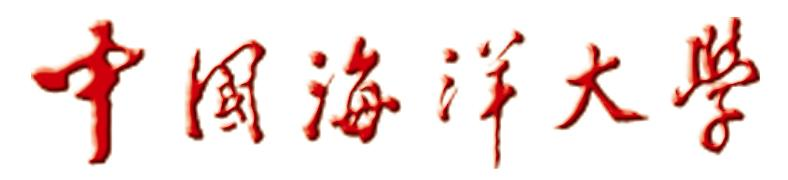 中國海洋大學